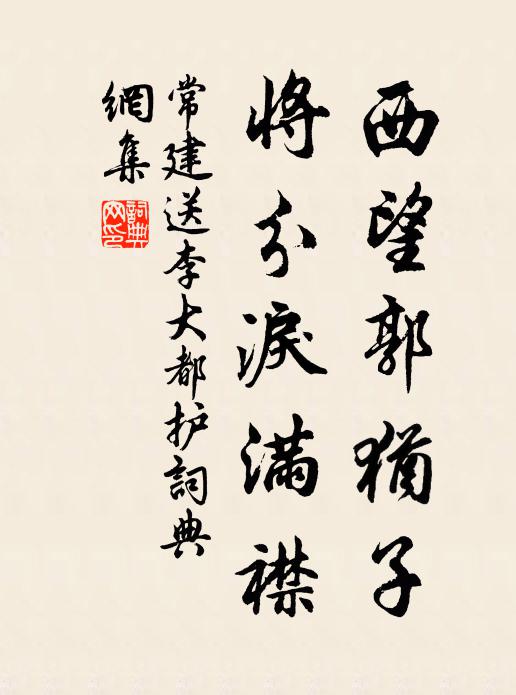 西望郭猶子
將分淚滿襟
常建送李大都护詞典
網集
詞典
网印